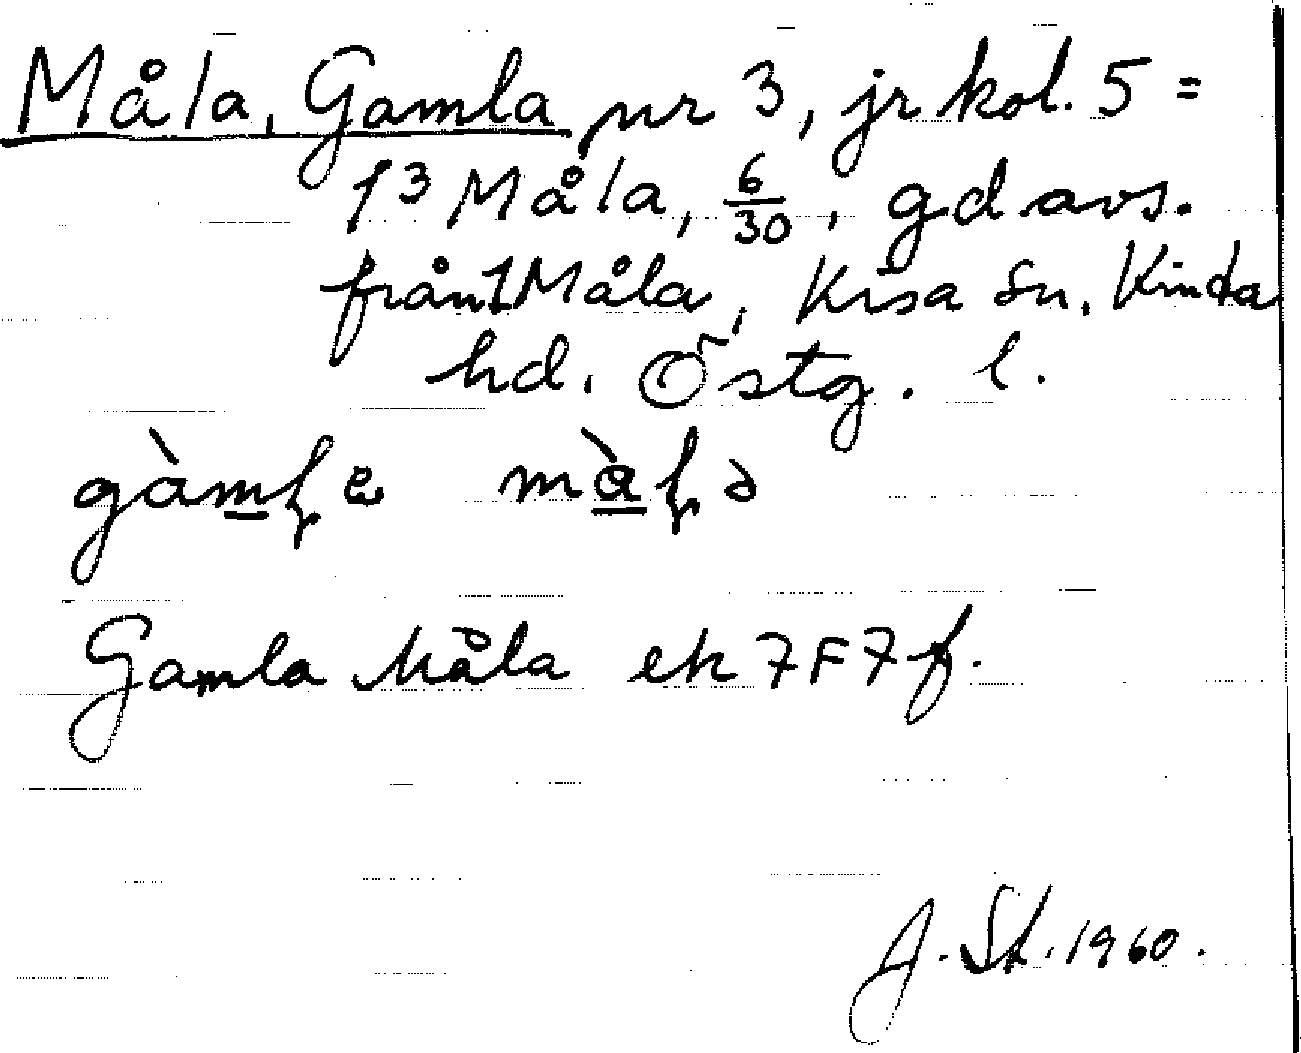 Måla, Gamla nr 3, jr kol. 5 =
1³ Måla, 6/30, gd avs.
från 1 Måla, Kisa sn, Kinda
hd. Östg. l.
Gamla Måla ek 7F7f.
1960.